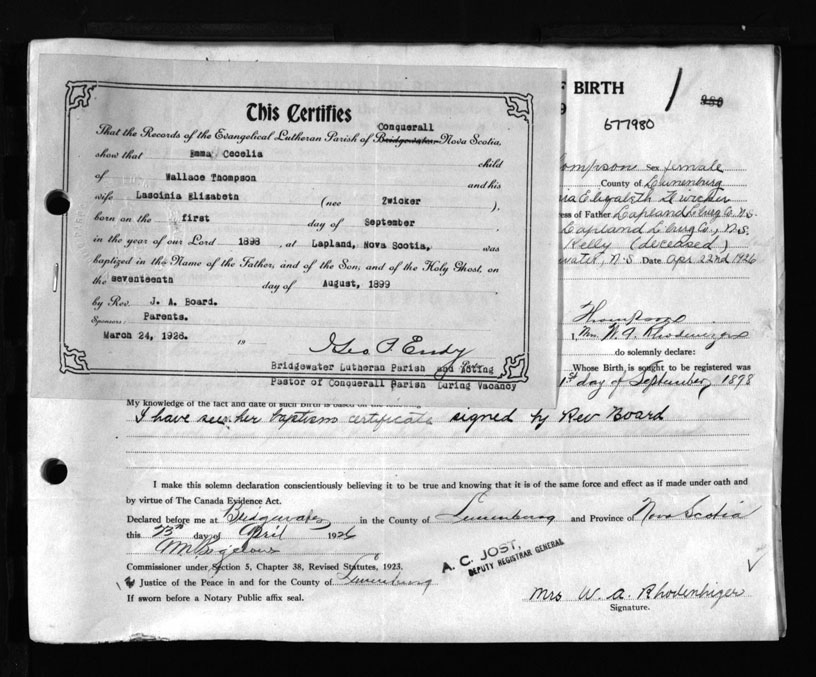 This Certifies
That the Records of the Evangelical Lutheran Parish of Bridgewater Conquerall Nova Scotia,
show that Emma Cecelia child
of Wallace Thompson and his
wife Lascinia Elizabeth (nee Zwicker ).
born on the first day of September
in the year of our Lord 1898 , at Lapland, Nova Scotia, was
baptized in the Name of the Father, and of the Son, and of the Holy Ghost, on
the seventeenth day of August, 1899
by Rev. J. A. Board.
Sponsors: Parents.
March 24, 1926. 19
Bridgewater Lutheran Parish and Acting
Pastor of Conquerall Parish During Vacancy
OF BIRTH
677980
Thompson Sex female
County of Lunenburg
Elizabeth Zwicker
ess of Father Lapland L'burg Co. N.S.
Lapland L'burg Co., N.S.
Kelly (deceased)
water, N.S. Date Apr 22nd 1926
Thompson
I, Mrs. W. A. Rhodenhizer
do solemnly declare:
Whose Birth is sought to be registered was
1st day of September 1898
My knowledge of the fact and date of such Birth is based on the following
I have seen her baptism certificate signed by Rev Board
I make this solemn declaration conscientiously believing it to be true and knowing that it is of the same force and effect as if made under oath and
by virtue of The Canada Evidence Act.
Declared before me at Bridgewater in the County of Lunenburg and Province of Nova Scotia
this 23rd day of April 1926
Commissioner under Section 5, Chapter 38, Revised Statutes, 1923.
Justice of the Peace in and for the County of Lunenburg
If sworn before a Notary Public affix seal.
A. C. JOST,
DEPUTY REGISTRAR GENERAL
Mrs W. A. Rhodenhizer
Signature.